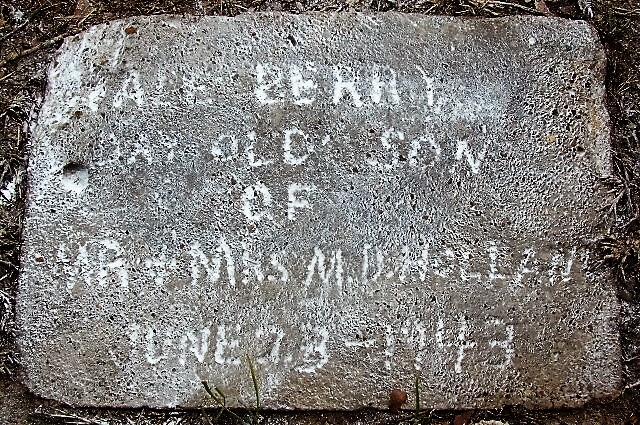 BERRY
DAY OLD SON
OF
MR + MRS M.D. HOLLAN
JUNE 23 - 1943